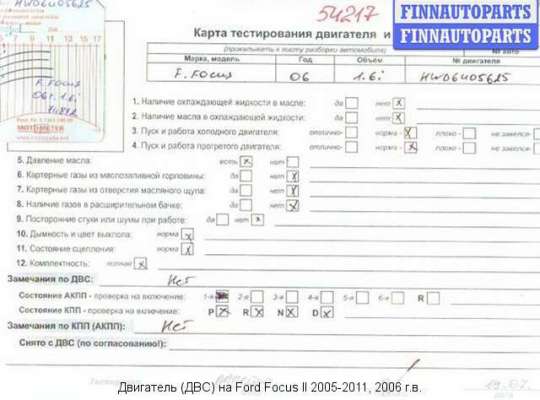 54217
FINNAUTOPARTS
FINNAUTOPARTS
HW06405625
5 7 9 11 13 15 17
F. Focus
06г. 1.6i
MOTOMETER
Карта тестирования двигателя и
(прикалывать к листу разборки автомобиля)
№ авто
Марка, модель Год Объем № двигателя
F. Focus 06 1.6i HW06405625
1. Наличие охлаждающей жидкости в масле: да нет X
2. Наличие масла в охлаждающей жидкости: да нет X
3. Пуск и работа холодного двигателя: отлично- норма- X плохо- не завелся-
4. Пуск и работа прогретого двигателя: отлично- норма- X плохо - не завелся-
5. Давление масла: есть X нет
6. Картерные газы из маслозаливной горловины: да нет X
7. Картерные газы из отверстия масляного щупа: да нет X
8. Наличие газов в расширительном бачке: да нет X
9. Посторонние стуки или шумы при работе: да нет X
10. Дымность и цвет выхлопа: норма X
11. Состояние сцепления: норма X
12. Комплектность: полная X
Замечания по ДВС: Нет
Состояние АКПП - проверка на включение: 1-я 2-я 3-я 4-я 5-я 6-я R
Состояние КПП - проверка на включение: P X R X N X D X
Замечания по КПП (АКПП): Нет
Снято с ДВС (по согласованию!):
Двигатель (ДВС) на Ford Focus II 2005-2011, 2006 г.в.